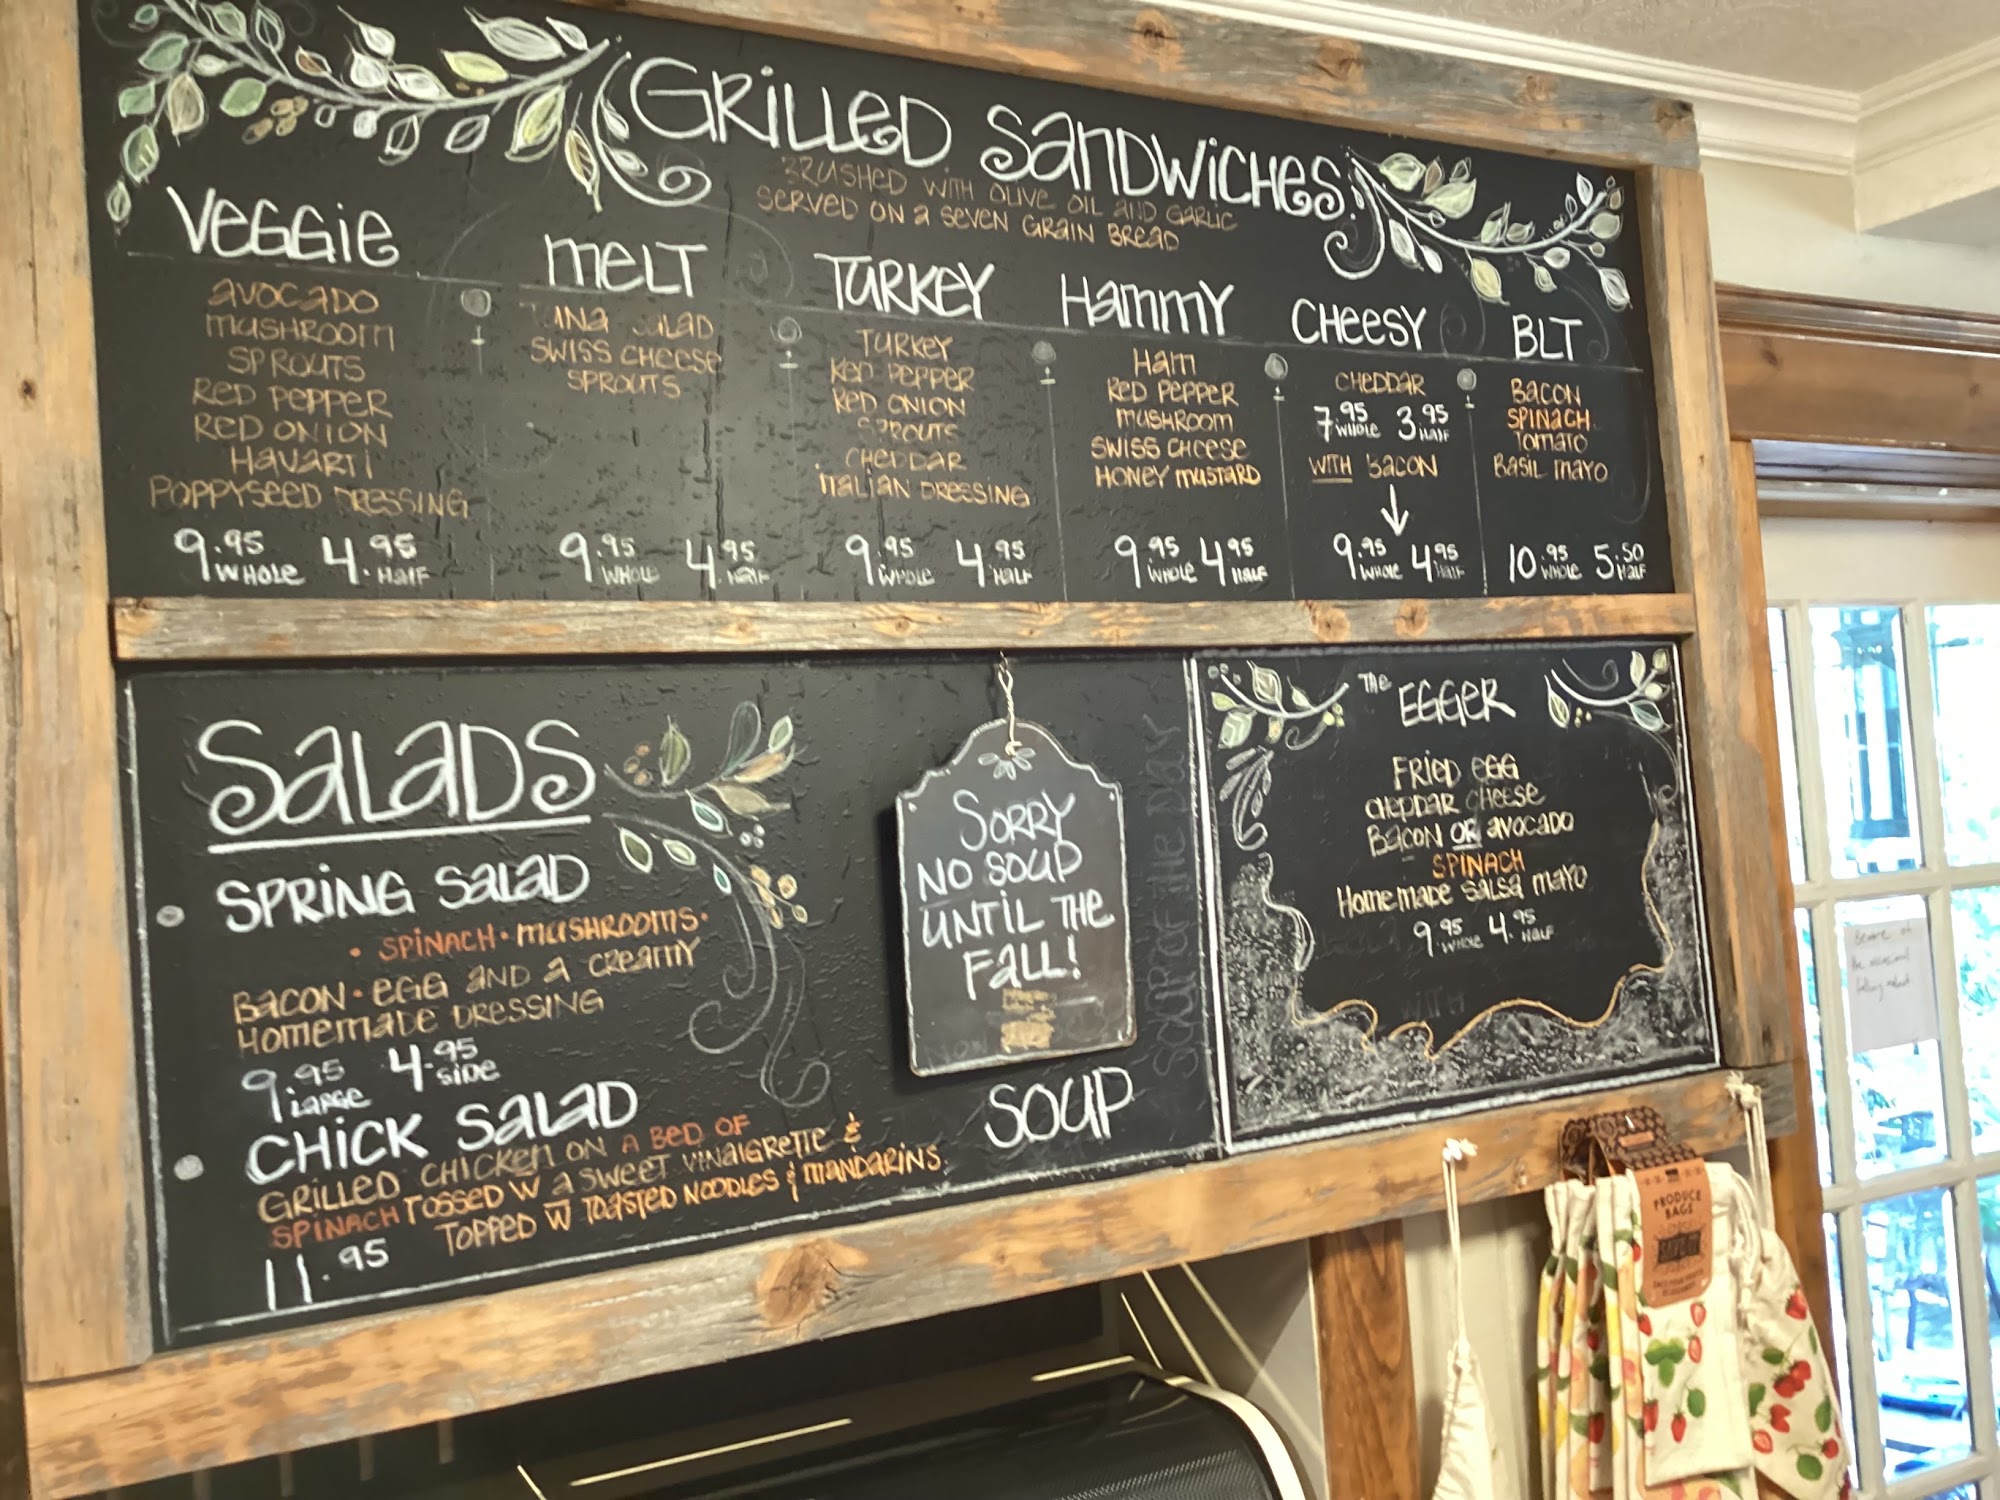 GRILLED SANDWICHES
BRUSHED WITH OLIVE OIL AND GARLIC
SERVED ON A SEVEN GRAIN BREAD
VEGGIE
AVOCADO
MUSHROOM
SPROUTS
RED PEPPER
RED ONION
HAVARTI
POPPYSEED DRESSING
9.95 WHOLE 4.95 HALF
MELT
TUNA SALAD
SWISS CHEESE
SPROUTS
9.95 WHOLE 4.95 HALF
TURKEY
TURKEY
RED PEPPER
RED ONION
SPROUTS
CHEDDAR
ITALIAN DRESSING
9.95 WHOLE 4.95 HALF
HAMMY
HAM
RED PEPPER
MUSHROOM
SWISS CHEESE
HONEY MUSTARD
9.95 WHOLE 4.95 HALF
CHEESY
CHEDDAR
7.95 WHOLE 3.95 HALF
WITH BACON
9.95 WHOLE 4.95 HALF
BLT
BACON
SPINACH
TOMATO
BASIL MAYO
10.95 WHOLE 5.50 HALF
SALADS
SPRING SALAD
• SPINACH • MUSHROOMS •
BACON • EGG AND A CREAMY
HOMEMADE DRESSING
9.95 LARGE 4.95 SIDE
CHICK SALAD
GRILLED CHICKEN ON A BED OF
SPINACH TOSSED W A SWEET VINAIGRETTE &
TOPPED W TOASTED NOODLES & MANDARINS
11.95
SORRY
NO SOUP
UNTIL THE
FALL!
SOUP
SOUP OF THE DAY
THE EGGER
FRIED EGG
CHEDDAR CHEESE
BACON OR AVOCADO
SPINACH
HOMEMADE SALSA MAYO
9.95 WHOLE 4.95 HALF
WITH
Beware of
the occasional
falling
PRODUCE
BAGS